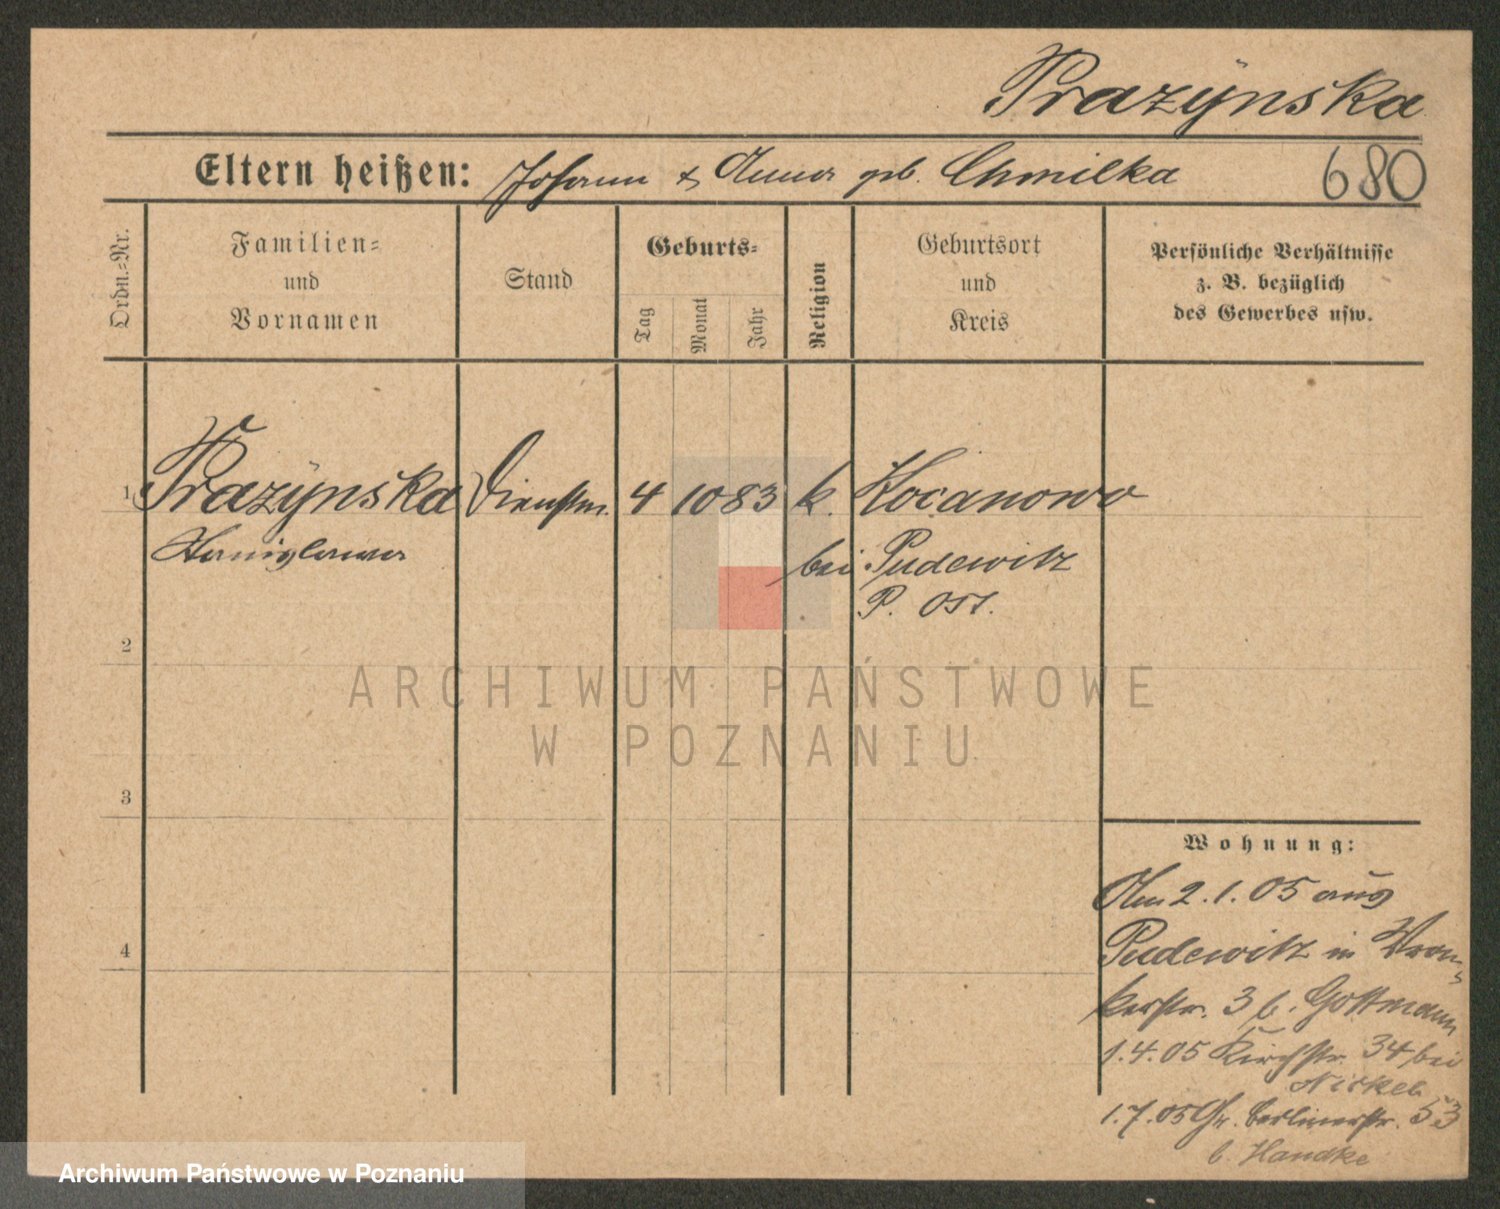 Prazÿnska
Eltern heißen: Johann & Anna geb. Chmilka
680
Ordn.-Nr.
Familien-
und
Vornamen
Stand
Geburts-
Tag
Monat
Jahr
Religion
Geburtsort
und
Kreis
Persönliche Verhältnisse
z. B. bezüglich
des Gewerbes usw.
1 Prazÿnska Dienstm. 4 10 83 k. Kocanowo
Stanislawa bei Pudewitz
P. Ost.
2
3
4
ARCHIWUM PAŃSTWOWE
W POZNANIU
Wohnung:
Am 2.1.05 aus
Pudewitz in Wron-
kerstr. 3 b. Gottmann
1.4.05 Kirchstr. 34 bei
Nickel
1.7.05 Gr. Berlinerstr. 53
b. Handke
Archiwum Państwowe w Poznaniu